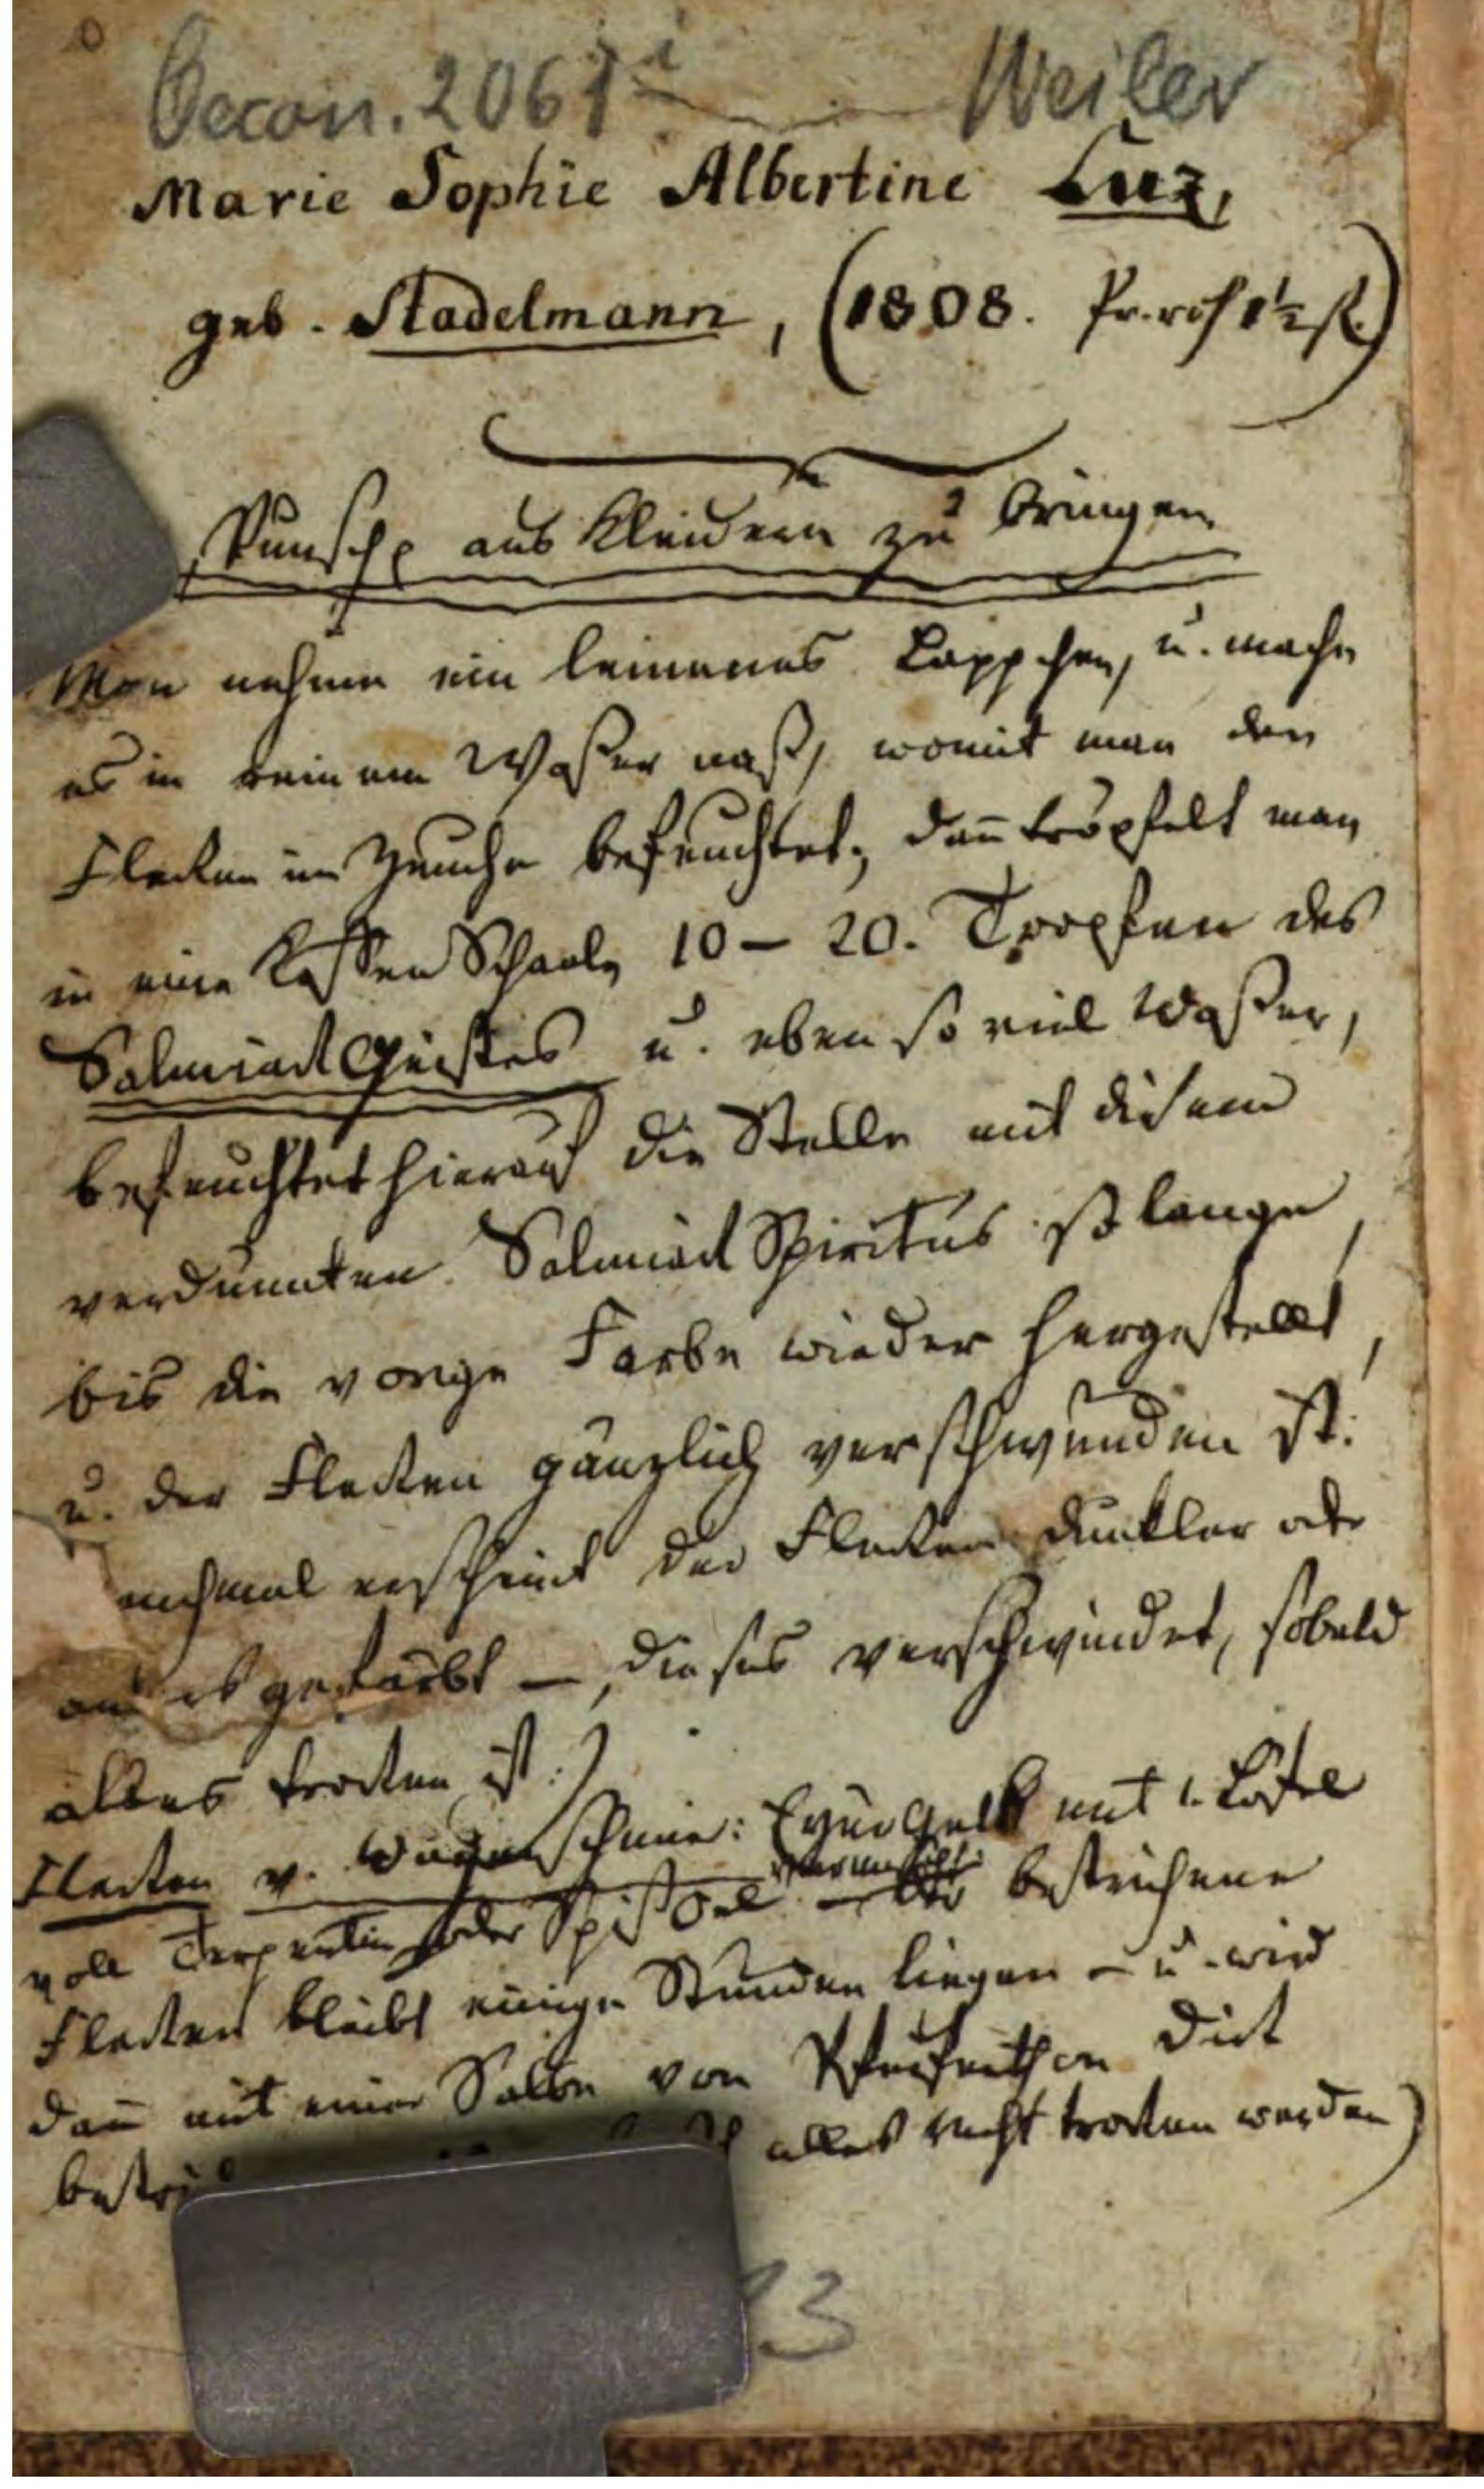 Oecon. 2061 i Weiler
Marie Sophie Albertine Luz,
geb. Stadelmann, (1808. Pr. roh 1½ fl.)
Punsche aus Kleidern zu bringen
Man nehme ein leinenes Läppchen, u. mache
es in reinem Waßer naß, womit man den
Flecken im Zeuche befeuchtet, dañ tröpfelt man
in eine Kaffee Schaale 10 – 20. Tropfen des
Salmiack Geistes u. eben so viel Waßer,
befeuchtet hierauf die Stelle mit diesem
verdünnten Salmiack Spiritus so lange,
bis die vorige Farbe wieder hergestellt,
u. der Flecken gänzlich verschwunden ist.
erscheint der Flecken dunkler oder
anders gefärbt –, dieses verschwindet, sobald
alles trocken ist.)
Flecken v. Wagenschmier: Eyer Gelb mit 1. Löffel
voll Terpentin oder vermischt bestrichene
Flecken bleibt einige Stunden liegen – u. wird
dañ mit einer Salbe von Pfeifenthon dick
alles recht trocken werden)
3